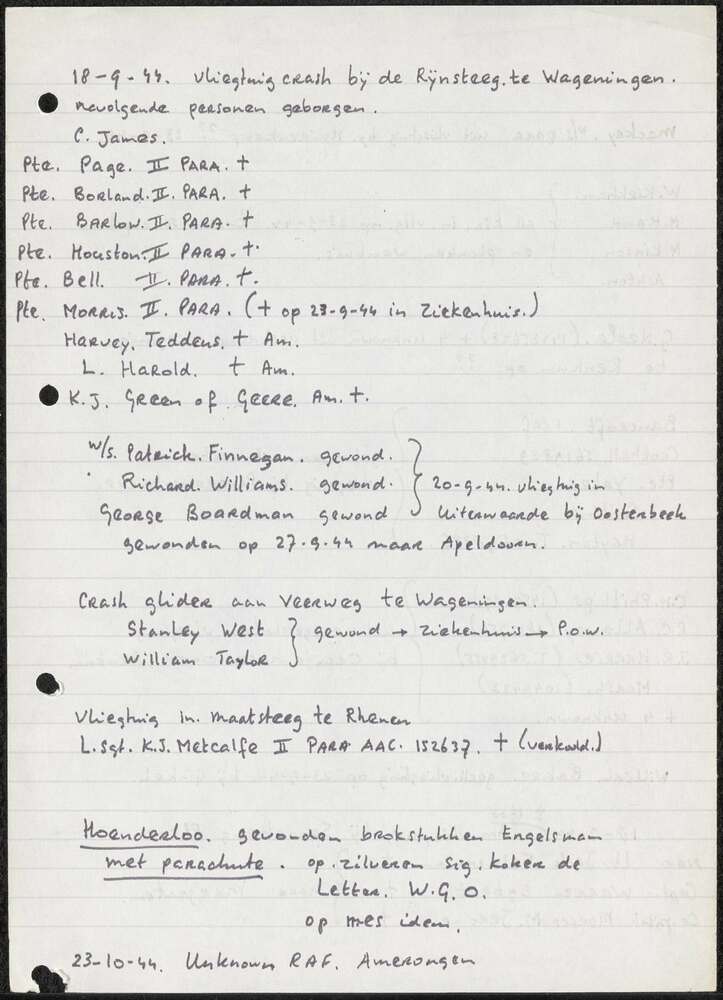 18-9-44. vliegtuig crash bij de Rijnsteeg. te Wageningen.
navolgende personen geborgen.
C. James.
Pte. Page. II PARA. +
Pte. Borland. II. PARA. +
Pte. Barlow. II. PARA. +
Pte. Houston. II PARA. +.
Pte. Bell. II. PARA. +.
Pte. Morris. II. PARA. (+ op 23-9-44 in Ziekenhuis.)
Harvey. Teddens. + Am.
L. Harold. + Am.
K.J. Green of Geere. Am. +.
w/s. Patrick. Finnegan. gewond.
Richard. Williams. gewond. 20-9-44. vliegtuig in
George Boardman gewond Uiterwaarde bij Oosterbeek
gewonden op 27.9.44 naar Apeldoorn.
Crash glider aan veerweg te Wageningen.
Stanley West gewond → ziekenhuis → P.o.w.
William Taylor
Vliegtuig in. maatsteeg te Rhenen
L.Sgt. K.J. Metcalfe II PARA AAC. 152637. + (verkoold.)
Hoenderloo. gevonden brokstukken Engelsman
met parachute. op. zilveren sig. koker de
Letter. W.G.O.
op mes idem.
23-10-44. Unknown RAF. Amerongen